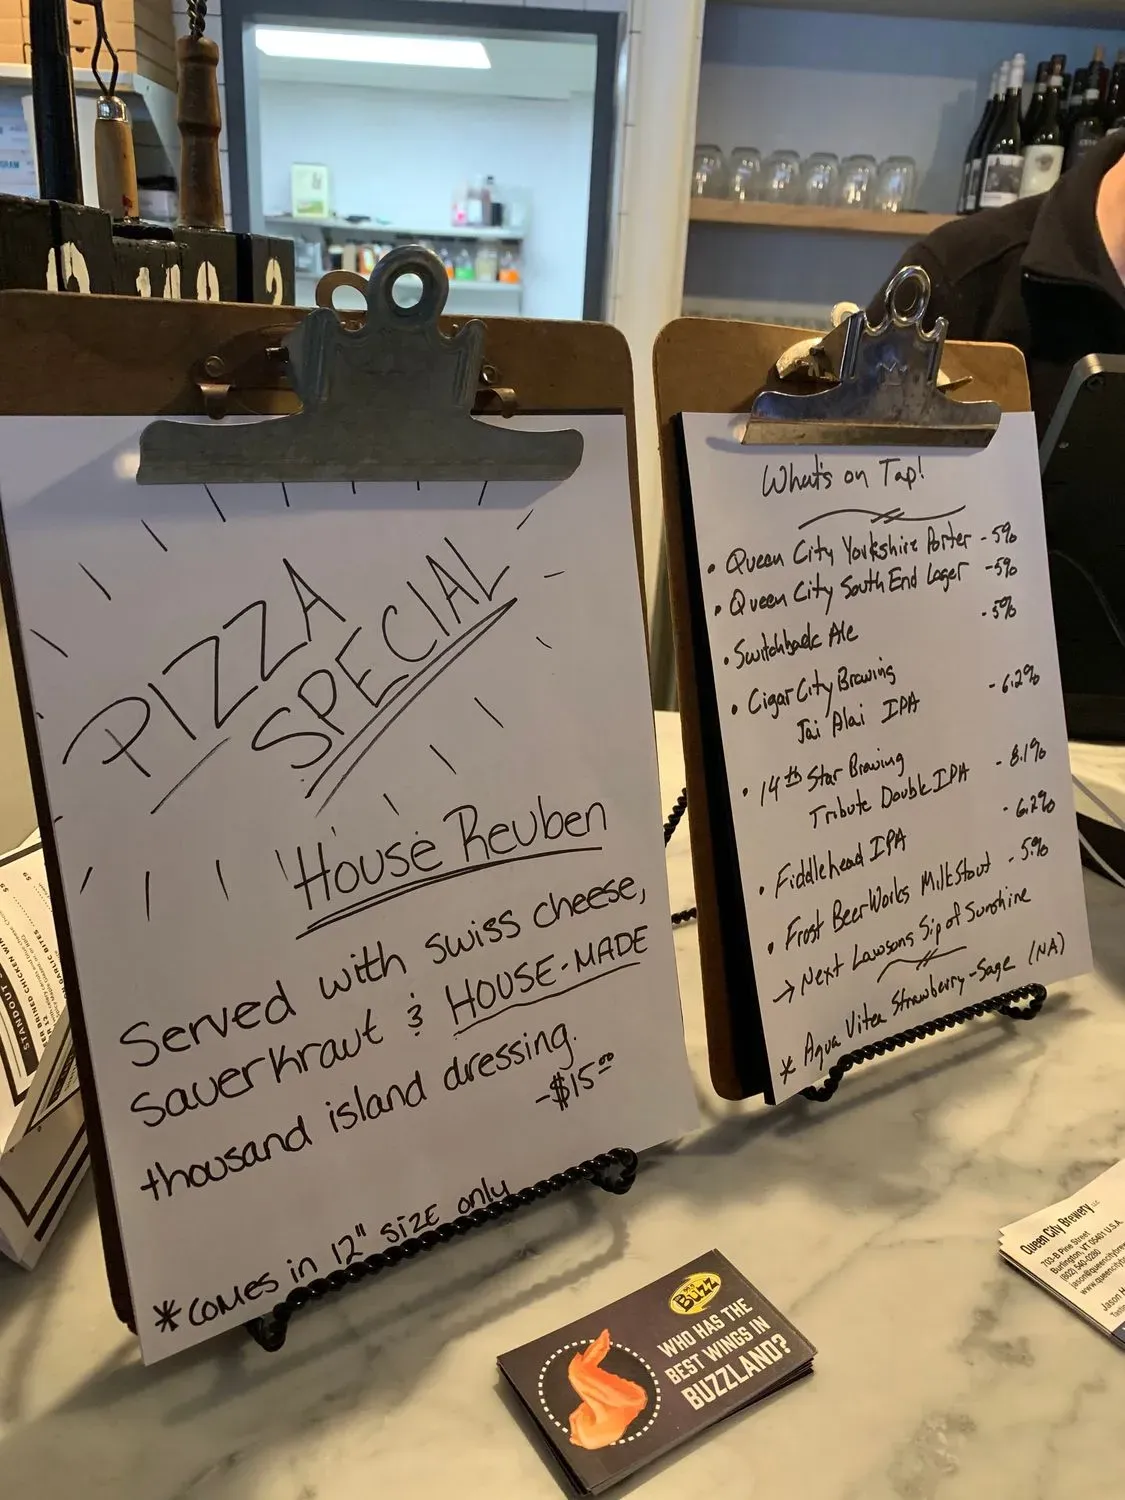 PIZZA
SPECIAL
House Reuben
Served with swiss cheese,
sauerkraut & HOUSE-MADE
thousand island dressing.
-$15.00
*COMES in 12" SIZE only
What's on Tap!
• Queen City Yorkshire Porter - 5%
• Queen City South End Lager - 5%
• Switchback Ale - 5%
• Cigar City Brewing
Jai Alai IPA - 6.2%
• 14th Star Brewing
Tribute Double IPA - 8.1%
• Fiddlehead IPA - 6.2%
• Frost BeerWorks Milk Stout - 5%
→ Next Lawsons Sip of Sunshine
* Aqua Vitea Strawberry-Sage (NA)
BUZZ
WHO HAS THE
BEST WINGS IN
BUZZLAND?
Queen City Brewery LLC
703-B Pine Street
Burlington, VT 05401 U.S.A.
(802) 540-0280
Jason H
STANDOUT